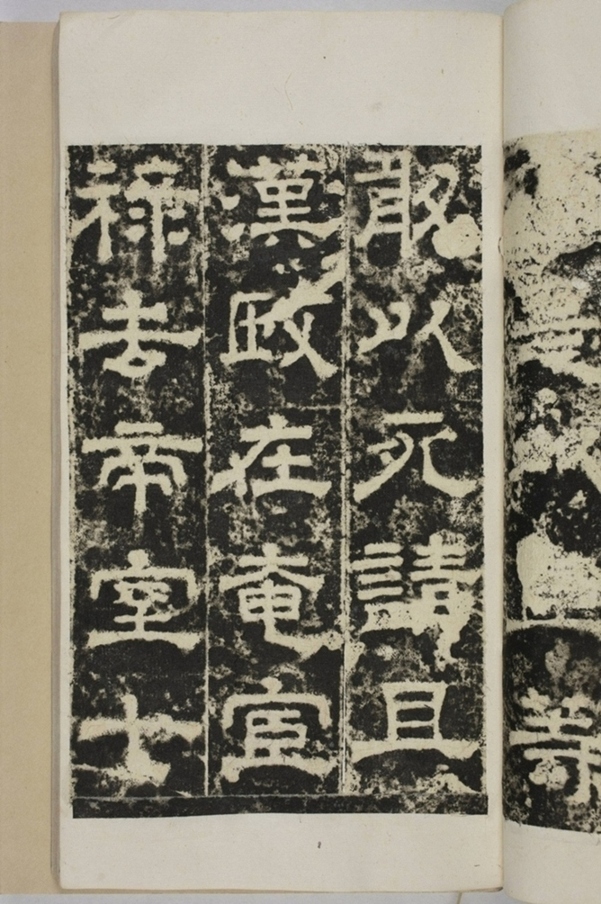 等
敢以死請且
漢政在奄宦
祿去帝室士